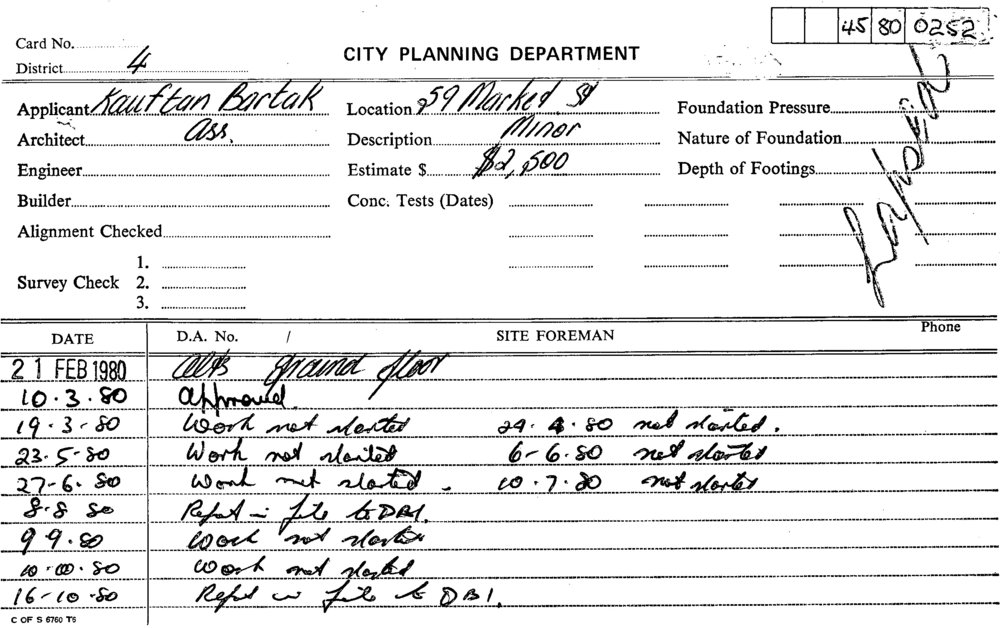 45 80 0252
Card No.
District 4
CITY PLANNING DEPARTMENT
Applicant Kauftan Bartak
Location 59 Market St
Foundation Pressure
Lapsed
Architect Ass.
Description Minor
Nature of Foundation
Engineer
Estimate $ $2,500
Depth of Footings
Builder
Conc. Tests (Dates)
Alignment Checked
Survey Check 1.
2.
3.
DATE D.A. No. / SITE FOREMAN Phone
21 FEB 1980 Alts ground floor
10.3.80 Approved.
19.3-80 Work not started 29.4.80 not started.
23.5-80 Work not started 6-6.80 not started
27-6.80 Work not started. 10.7.80 not started
8.8 80 Report in file to DBI.
9 9.80 Work not started
10.10.80 Work not started
16-10.80 Report in file to DBI.
C OF S 6760 T6